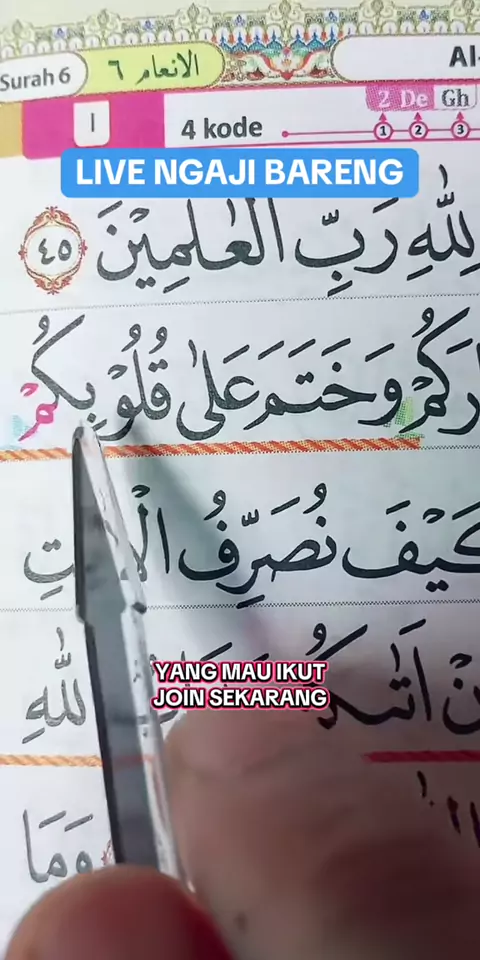 Surah 6
الانعام ٦
Al-
2 De Gh
١
4 kode
1 2 3
LIVE NGAJI BARENG
لِلّٰهِ رَبِّ الْعٰلَمِيْنَ ٤٥
رَكُمْ وَخَتَمَ عَلٰى قُلُوْبِكُمْ
كَيْفَ نُصَرِّفُ الْ
YANG MAU IKUT
JOIN SEKARANG
لِلّٰهِ
وَمَا